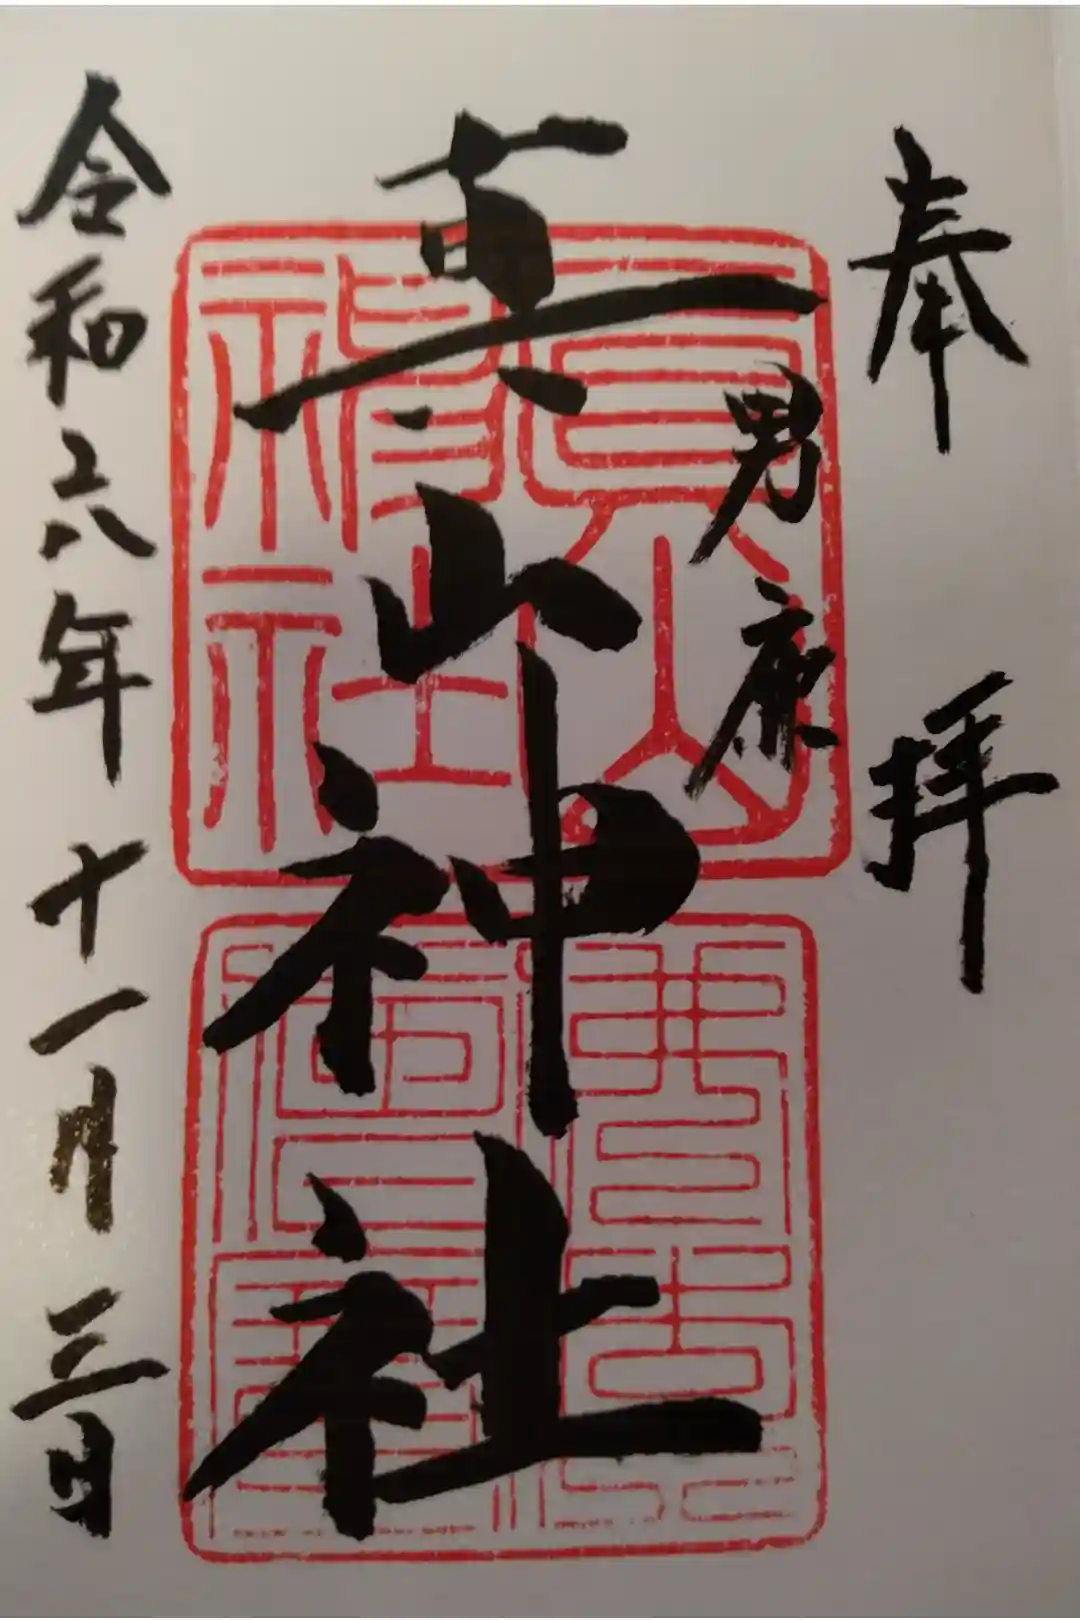 奉拝
男鹿
真山神社
令和六年十一月三日
眞山神社